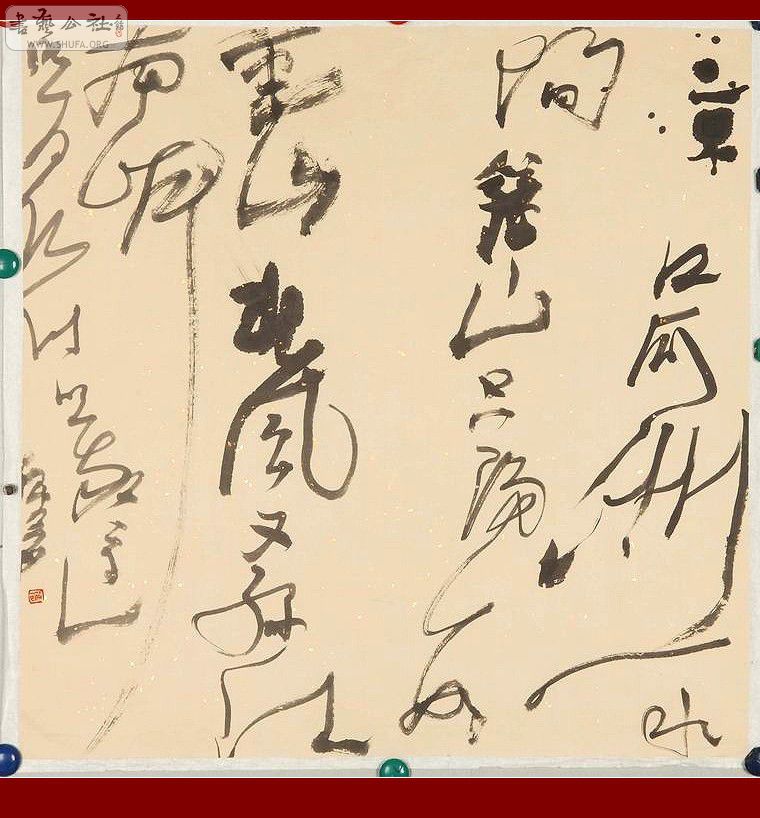 書藝公社
WWW.SHUFA.ORG
京口瓜洲一水
間鍾山只隔數
重山春風又綠江
南岸
明月何時照我還